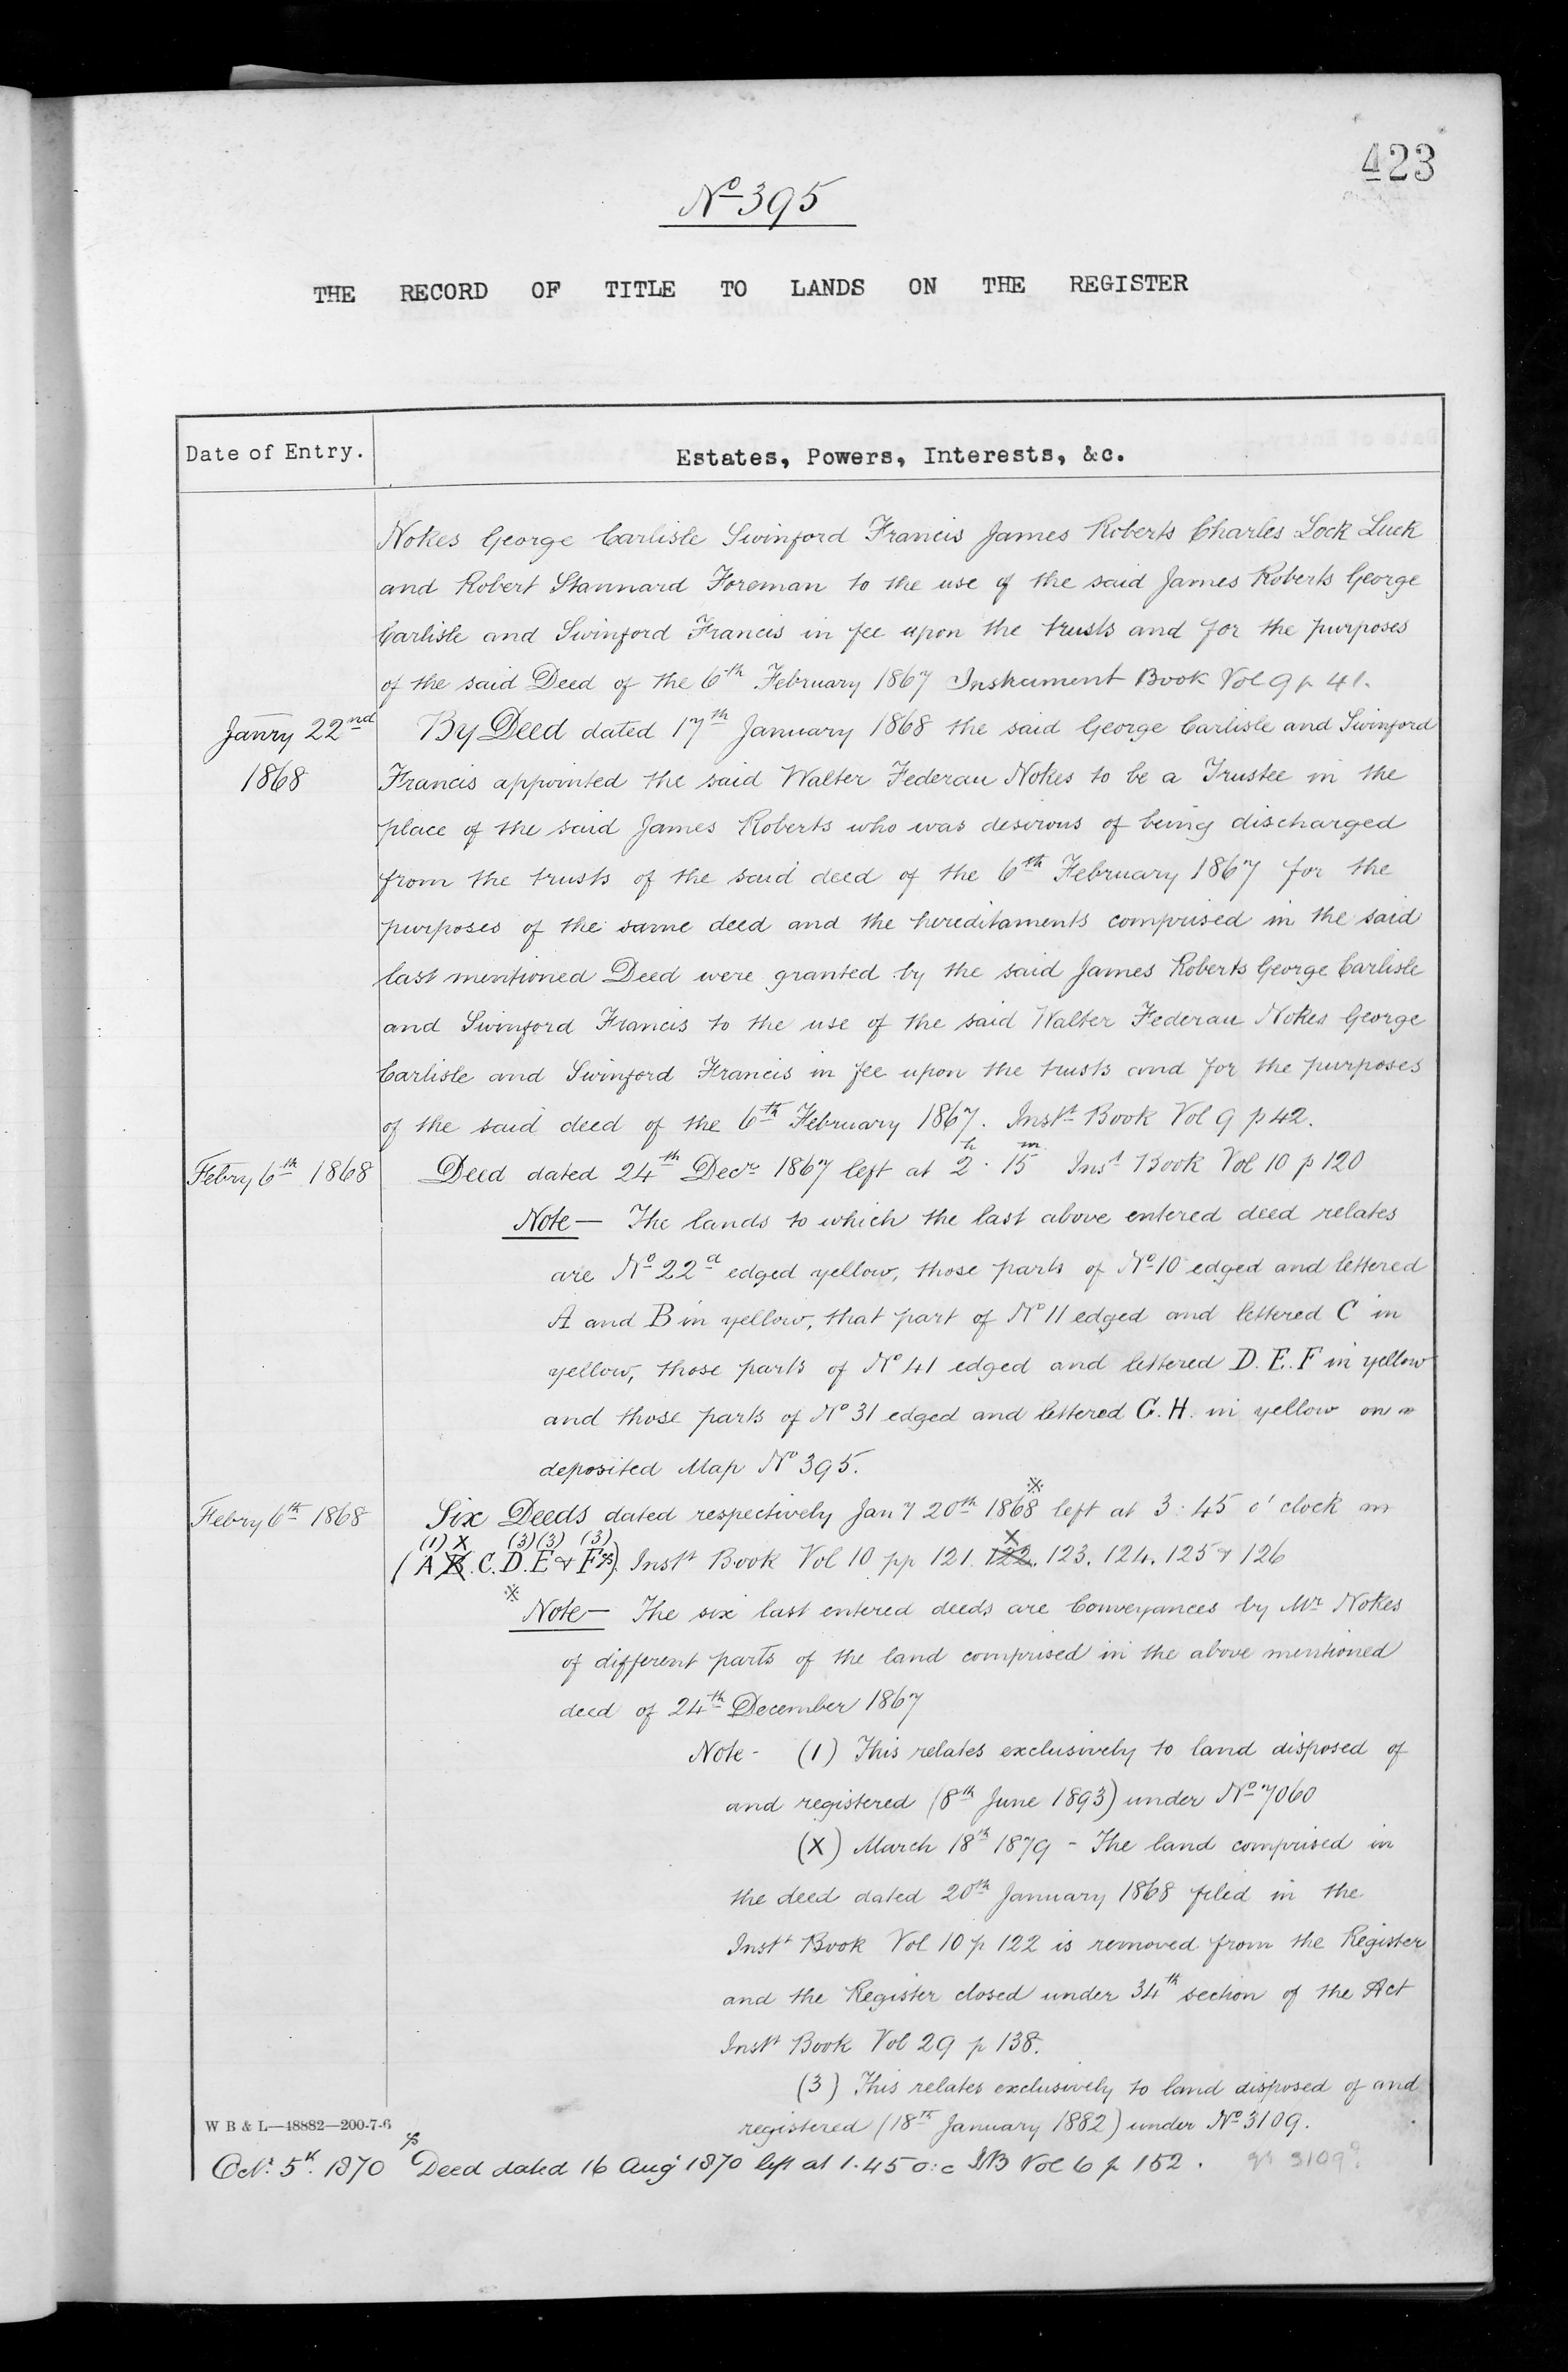 423
No 395
THE RECORD OF TITLE TO LANDS ON THE REGISTER
Date of Entry.
Estates, Powers, Interests, &c.
Nokes George Carlisle Swinford Francis James Roberts Charles Lock Luck
and Robert Stannard Foreman to the use of the said James Roberts George
Carlisle and Swinford Francis in fee upon the trusts and for the purposes
of the said Deed of the 6th February 1867 Instrument Book Vol 9 p 41.
Janry 22nd
1868
By Deed dated 17th January 1868 the said George Carlisle and Swinford
Francis appointed the said Walter Federau Nokes to be a Trustee in the
place of the said James Roberts who was desirous of being discharged
from the trusts of the said deed of the 6th February 1867 for the
purposes of the same deed and the hereditaments comprised in the said
last mentioned Deed were granted by the said James Roberts George Carlisle
and Swinford Francis to the use of the said Walter Federau Nokes George
Carlisle and Swinford Francis in fee upon the trusts and for the purposes
of the said deed of the 6th February 1867. Instt Book Vol 9 p 42.
Febry 6th 1868
Deed dated 24th Decr 1867 left at 2h. 15m Inst Book Vol 10 p 120
Note — The lands to which the last above entered deed relates
are No 22a edged yellow, those parts of No 10 edged and lettered
A and B in yellow, that part of No 11 edged and lettered C in
yellow, those parts of No 41 edged and lettered D. E. F in yellow
and those parts of No 31 edged and lettered G. H. in yellow on a
deposited Map No 395.
Febry 6th 1868
Six Deeds dated respectively Jany 20th 1868 ※ left at 3.45 o'clock
(1) X (3) (3) (3) X
(A B. C. D. E & F). Instt Book Vol 10 pp 121. 122. 123. 124. 125 & 126
※ Note — The six last entered deeds are Conveyances by Mr Nokes
of different parts of the land comprised in the above mentioned
deed of 24th December 1867
Note - (1) This relates exclusively to land disposed of
and registered (8th June 1893) under No 7060
(X) March 18th 1879 - The land comprised in
the deed dated 20th January 1868 filed in the
Instt Book Vol 10 p 122 is removed from the Register
and the Register closed under 34th section of the Act
Instt Book Vol 29 p 138.
(3) This relates exclusively to land disposed of and
registered (18th January 1882) under No 3109.
W B & L—18882—200-7-6
Octr. 5th. 1870 Deed dated 16 Aug 1870 left at 1.45 o:c IB Vol 6 p 152. 3109